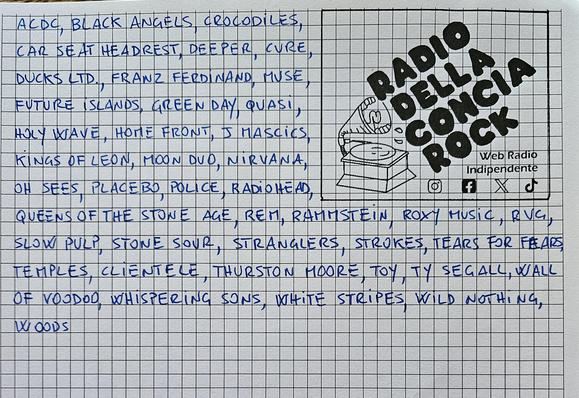 ACDC, BLACK ANGELS, CROCODILES,
CAR SEAT HEADREST, DEEPER, CURE,
DUCKS LTD., FRANZ FERDINAND, MUSE,
FUTURE ISLANDS, GREEN DAY, QUASI,
HOLY WAVE, HOME FRONT, J MASCICS,
KINGS OF LEON, MOON DUO, NIRVANA,
OH SEES, PLACEBO, POLICE, RADIOHEAD,
RADIO
DELLA
CONCIA
ROCK
Web Radio
Indipendente
QUEENS OF THE STONE AGE, REM, RAMMSTEIN, ROXY MUSIC, RVG,
SLOW PULP, STONE SOUR, STRANGLERS, STROKES, TEARS FOR FEARS,
TEMPLES, CLIENTELE, THURSTON MOORE, TOY, TY SEGALL, WALL
OF VOODOO, WHISPERING SONS, WHITE STRIPES, WILD NOTHING,
WOODS